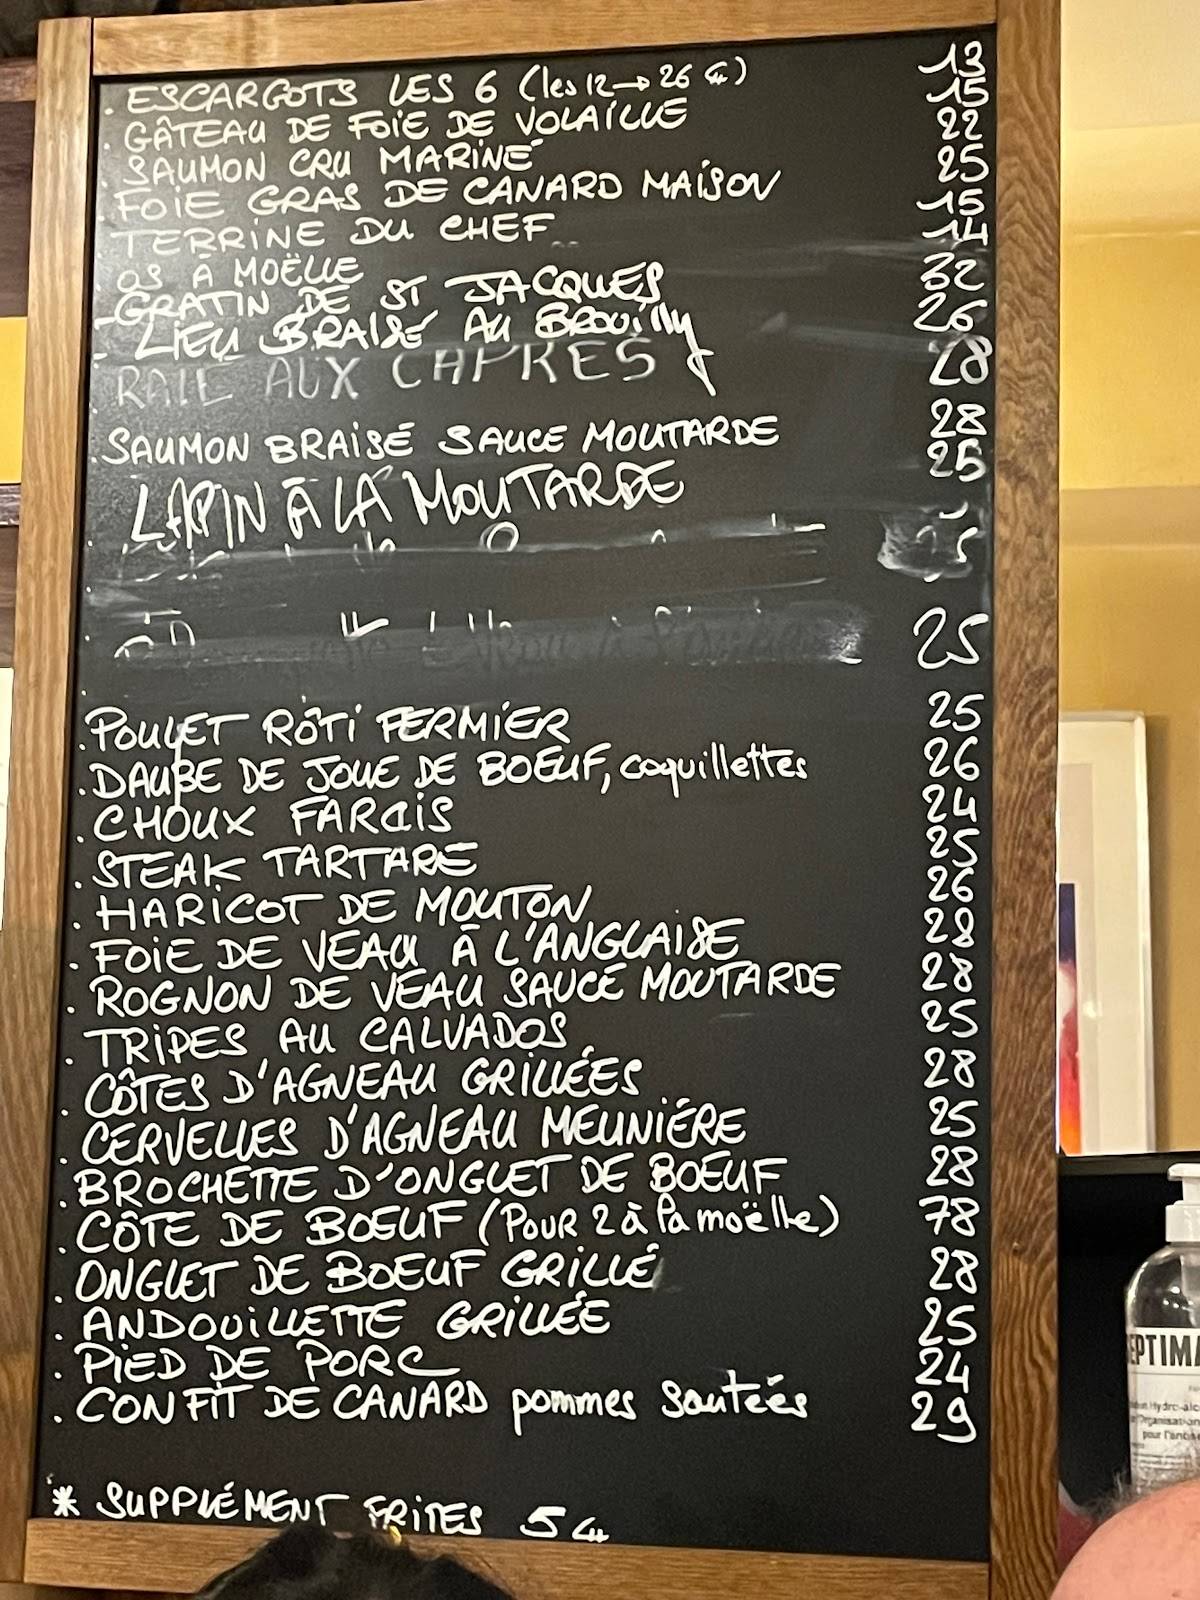 . ESCARGOTS LES 6 (les 12 → 26 €) 13
. GÂTEAU DE FOIE DE VOLAILLE 15
. SAUMON CRU MARINÉ 22
. FOIE GRAS DE CANARD MAISON 25
. TERRINE DU CHEF 15
. OS À MOËLLE 14
- GRATIN DE ST JACQUES 32
- LIEU BRAISÉ AU BROUILLY 26
. RAIE AUX CAPRES 28
. SAUMON BRAISÉ SAUCE MOUTARDE 28
. LAPIN À LA MOUTARDE 25
25
25
. POULET RÔTI FERMIER 25
. DAUBE DE JOUE DE BOEUF, coquillettes 26
. CHOUX FARCIS 24
. STEAK TARTARE 25
. HARICOT DE MOUTON 26
. FOIE DE VEAU À L'ANGLAISE 28
. ROGNON DE VEAU SAUCE MOUTARDE 28
. TRIPES AU CALVADOS 25
. CÔTES D'AGNEAU GRILLÉES 28
. CERVELLES D'AGNEAU MEUNIÉRE 25
. BROCHETTE D'ONGLET DE BOEUF 28
. CÔTE DE BOEUF (POUR 2 à la moëlle) 78
. ONGLET DE BOEUF GRILLÉ 28
. ANDOUILLETTE GRILLÉE 25
. PIED DE PORC 24
. CONFIT DE CANARD pommes sautées 29
* SUPPLÉMENT FRITES 5 €
EPTIMA